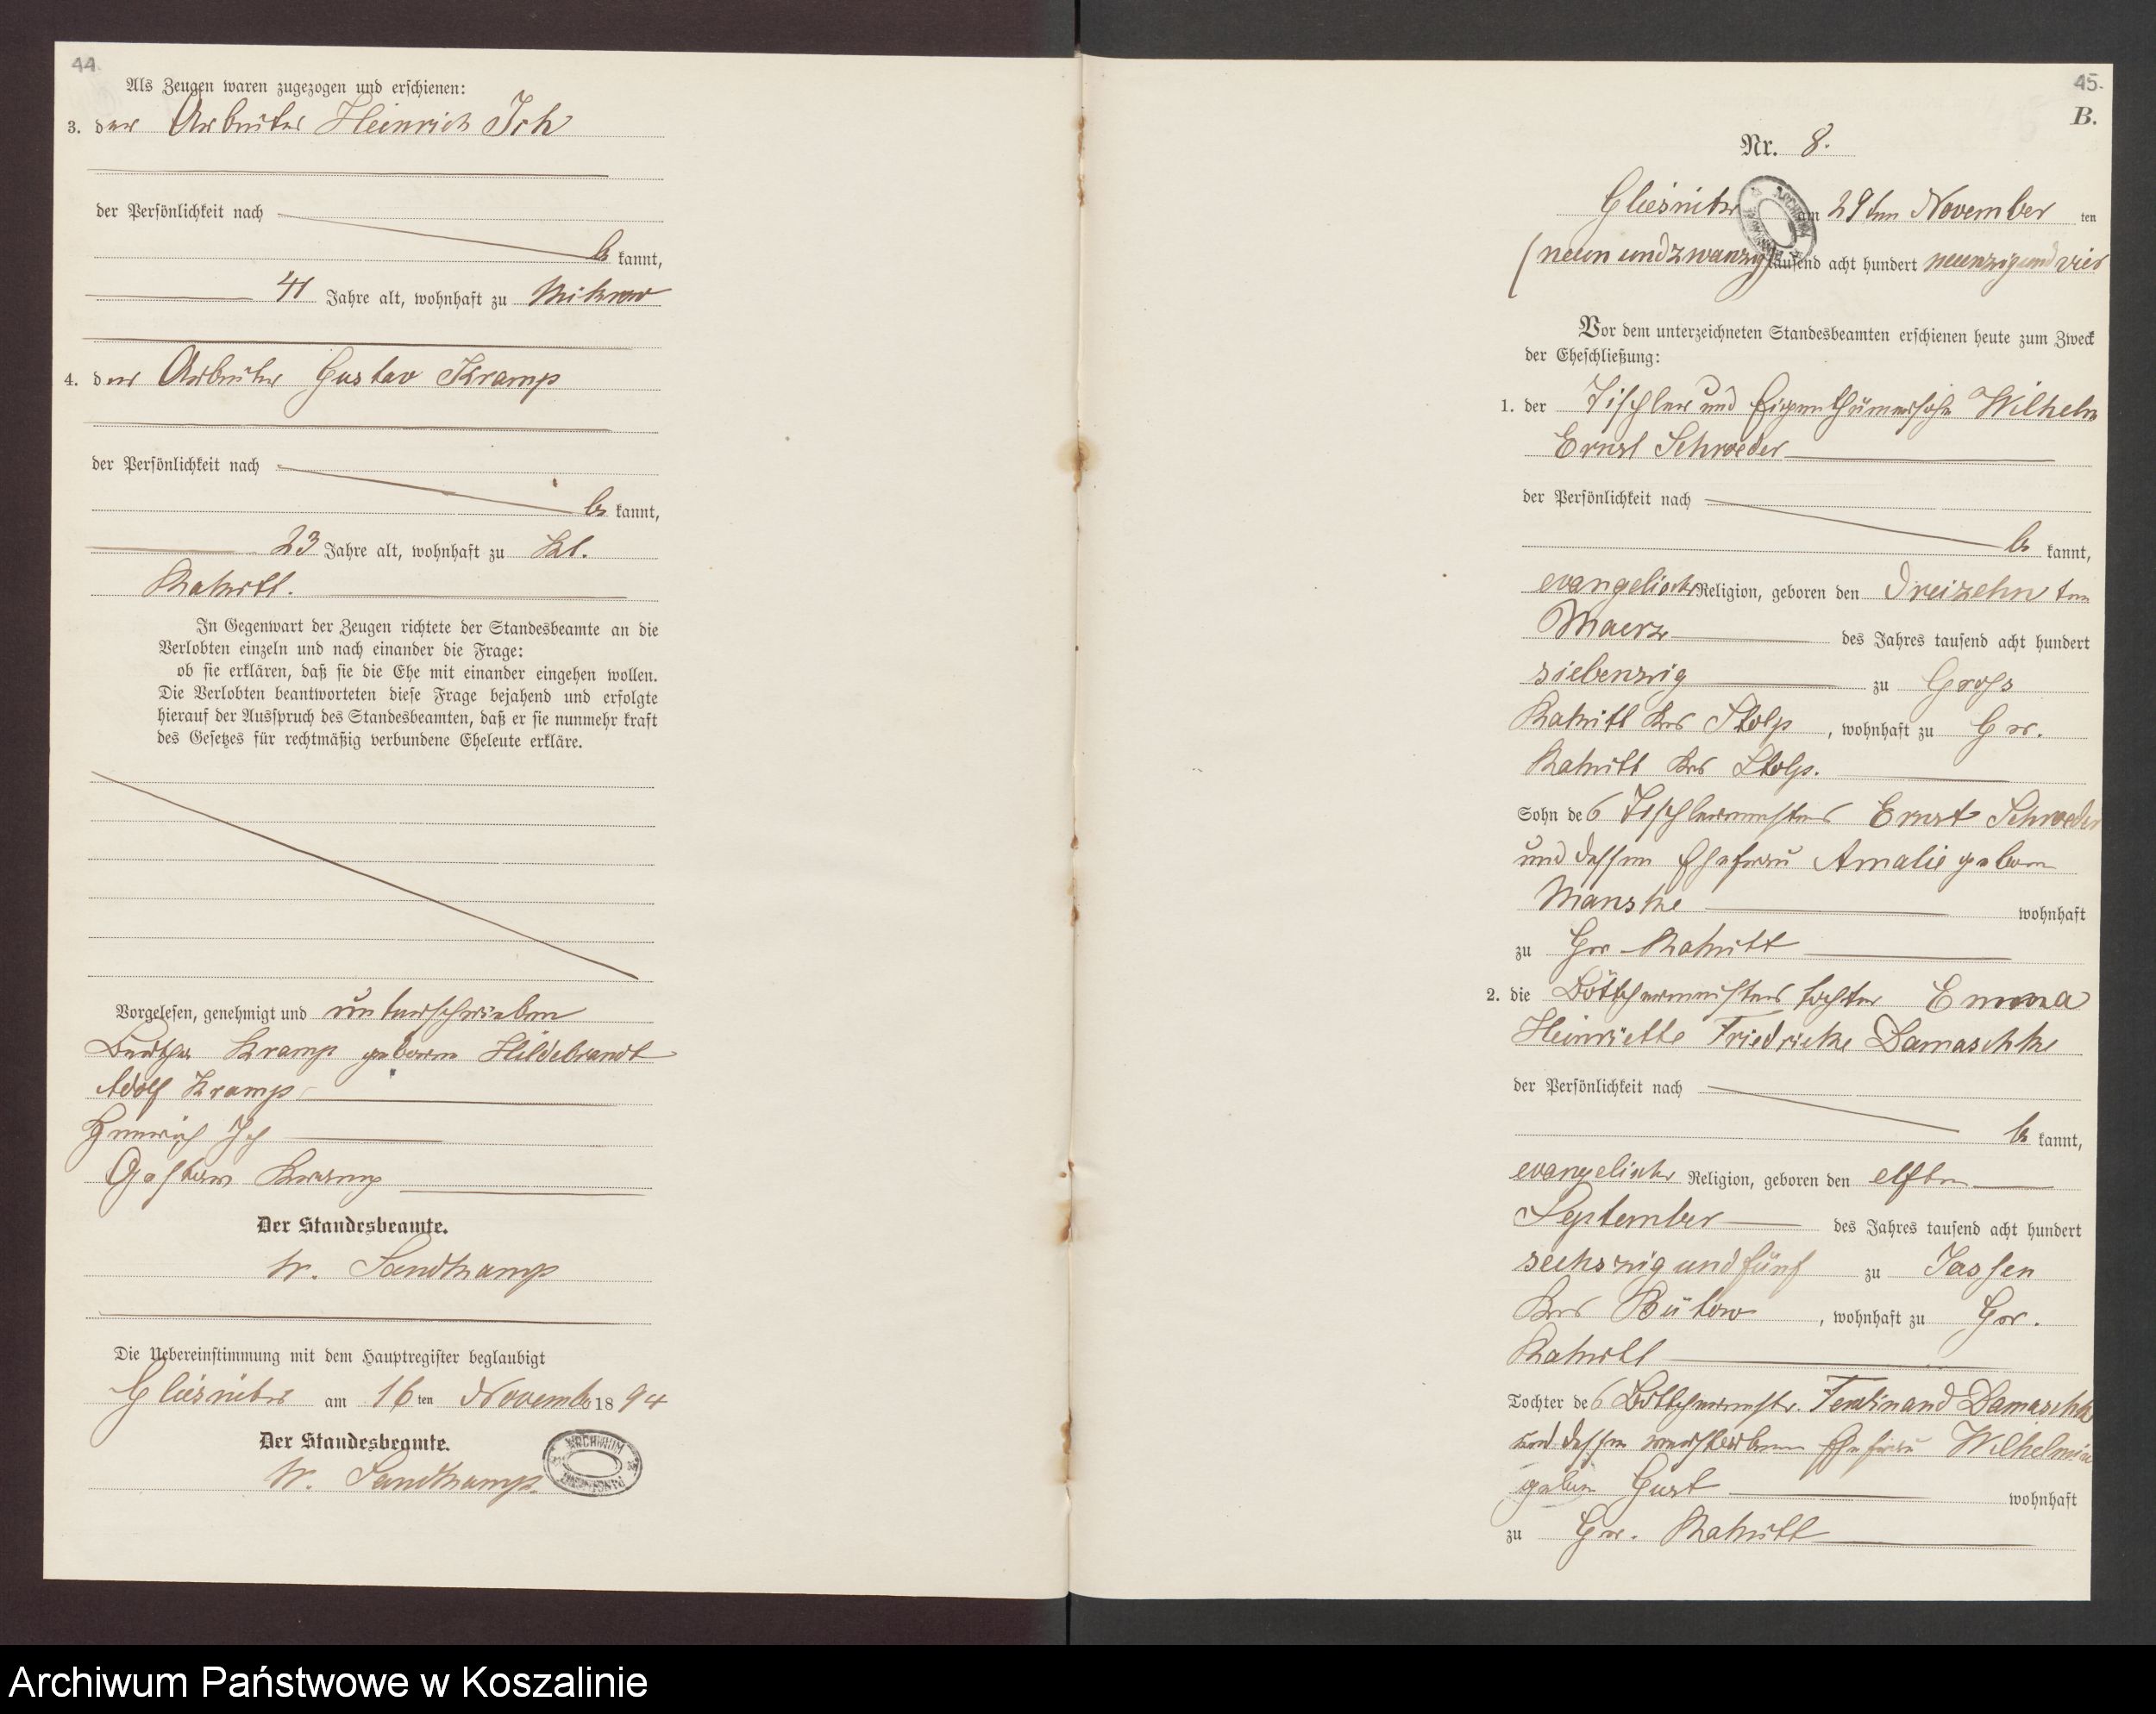 44.
Als Zeugen waren zugezogen und erschienen:
3. der Arbeiter Heinrich Ich
der Persönlichkeit nach
be kannt,
41 Jahre alt, wohnhaft zu Mikrow
4. der Arbeiter Gustav Kramp
der Persönlichkeit nach
be kannt,
23 Jahre alt, wohnhaft zu Kl.
Rakitt.
In Gegenwart der Zeugen richtete der Standesbeamte an die
Verlobten einzeln und nach einander die Frage:
ob sie erklären, daß sie die Ehe mit einander eingehen wollen.
Die Verlobten beantworteten diese Frage bejahend und erfolgte
hierauf der Ausspruch des Standesbeamten, daß er sie nunmehr kraft
des Gesetzes für rechtmäßig verbundene Eheleute erkläre.
Vorgelesen, genehmigt und unterschrieben
Bertha Kramp geborene Hildebrandt
Adolf Kramp
Heinrich Ich
Gustav Kramp
Der Standesbeamte.
W. Sandkamp
Die Uebereinstimmung mit dem Hauptregister beglaubigt
Gliesnitz am 16 ten November 18 94
Der Standesbeamte.
W. Sandkamp.
ARCHIWUM
45.
B.
Nr. 8.
Gliesnitz am 29ten November ten
ARCHIWUM
(neun und zwanzig) tausend acht hundert neunzig und vier
Vor dem unterzeichneten Standesbeamten erschienen heute zum Zweck
der Eheschließung:
1. der Tischler und Eigenthümersohn Wilhelm
Ernst Schroeder
der Persönlichkeit nach
be kannt,
evangelischer Religion, geboren den dreizehn ten
Maerz des Jahres tausend acht hundert
siebenzig zu Gross
Rakitt Krs Stolp, wohnhaft zu Gr.
Rakitt Krs Stolp.
Sohn des Tischlermeisters Ernst Schroeder
und dessen Ehefrau Amalie geborn
Manske wohnhaft
zu Gr Rakitt
2. die Böttchermeisters tochter Emma
Heinriette Friedricke Damaschke
der Persönlichkeit nach
be kannt,
evangelischer Religion, geboren den elften
September des Jahres tausend acht hundert
sechszig und fünf zu Jassen
Krs Bütow, wohnhaft zu Gr.
Rakitt
Tochter des Böttchermeistr. Ferdinand Damaschke
und dessen verstorbenen Ehefrau Wilhelmine
geborn Gust wohnhaft
zu Gr. Rakitt
Archiwum Państwowe w Koszalinie